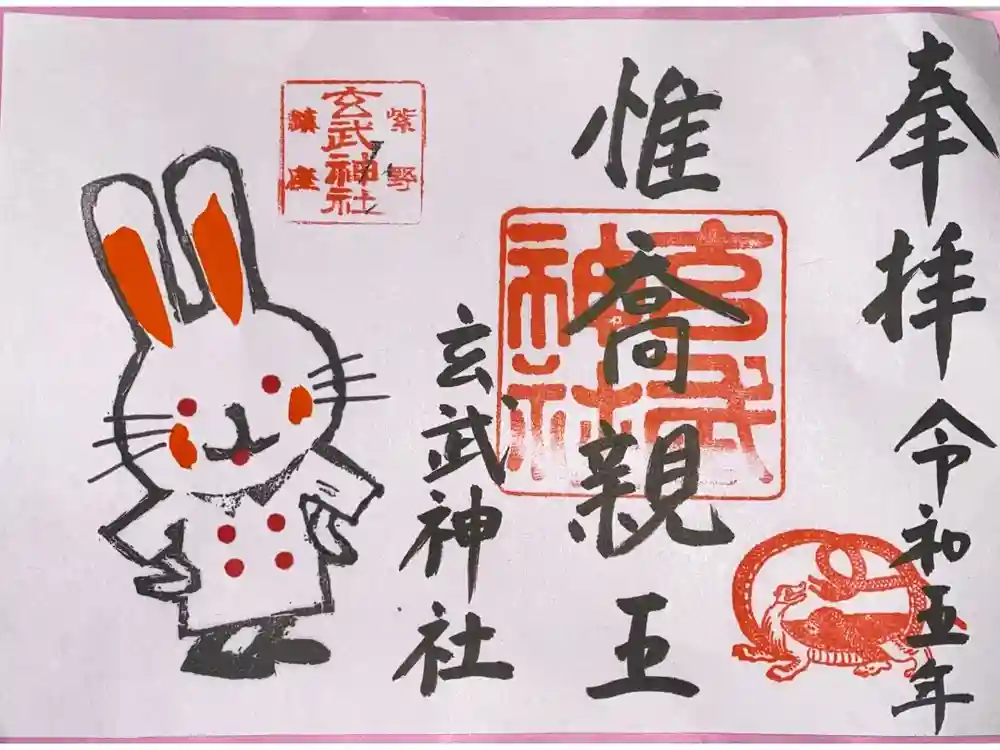 奉拝
令和五年
惟喬親王
玄武神社
玄武神社
紫野
玄武神社
鎮座